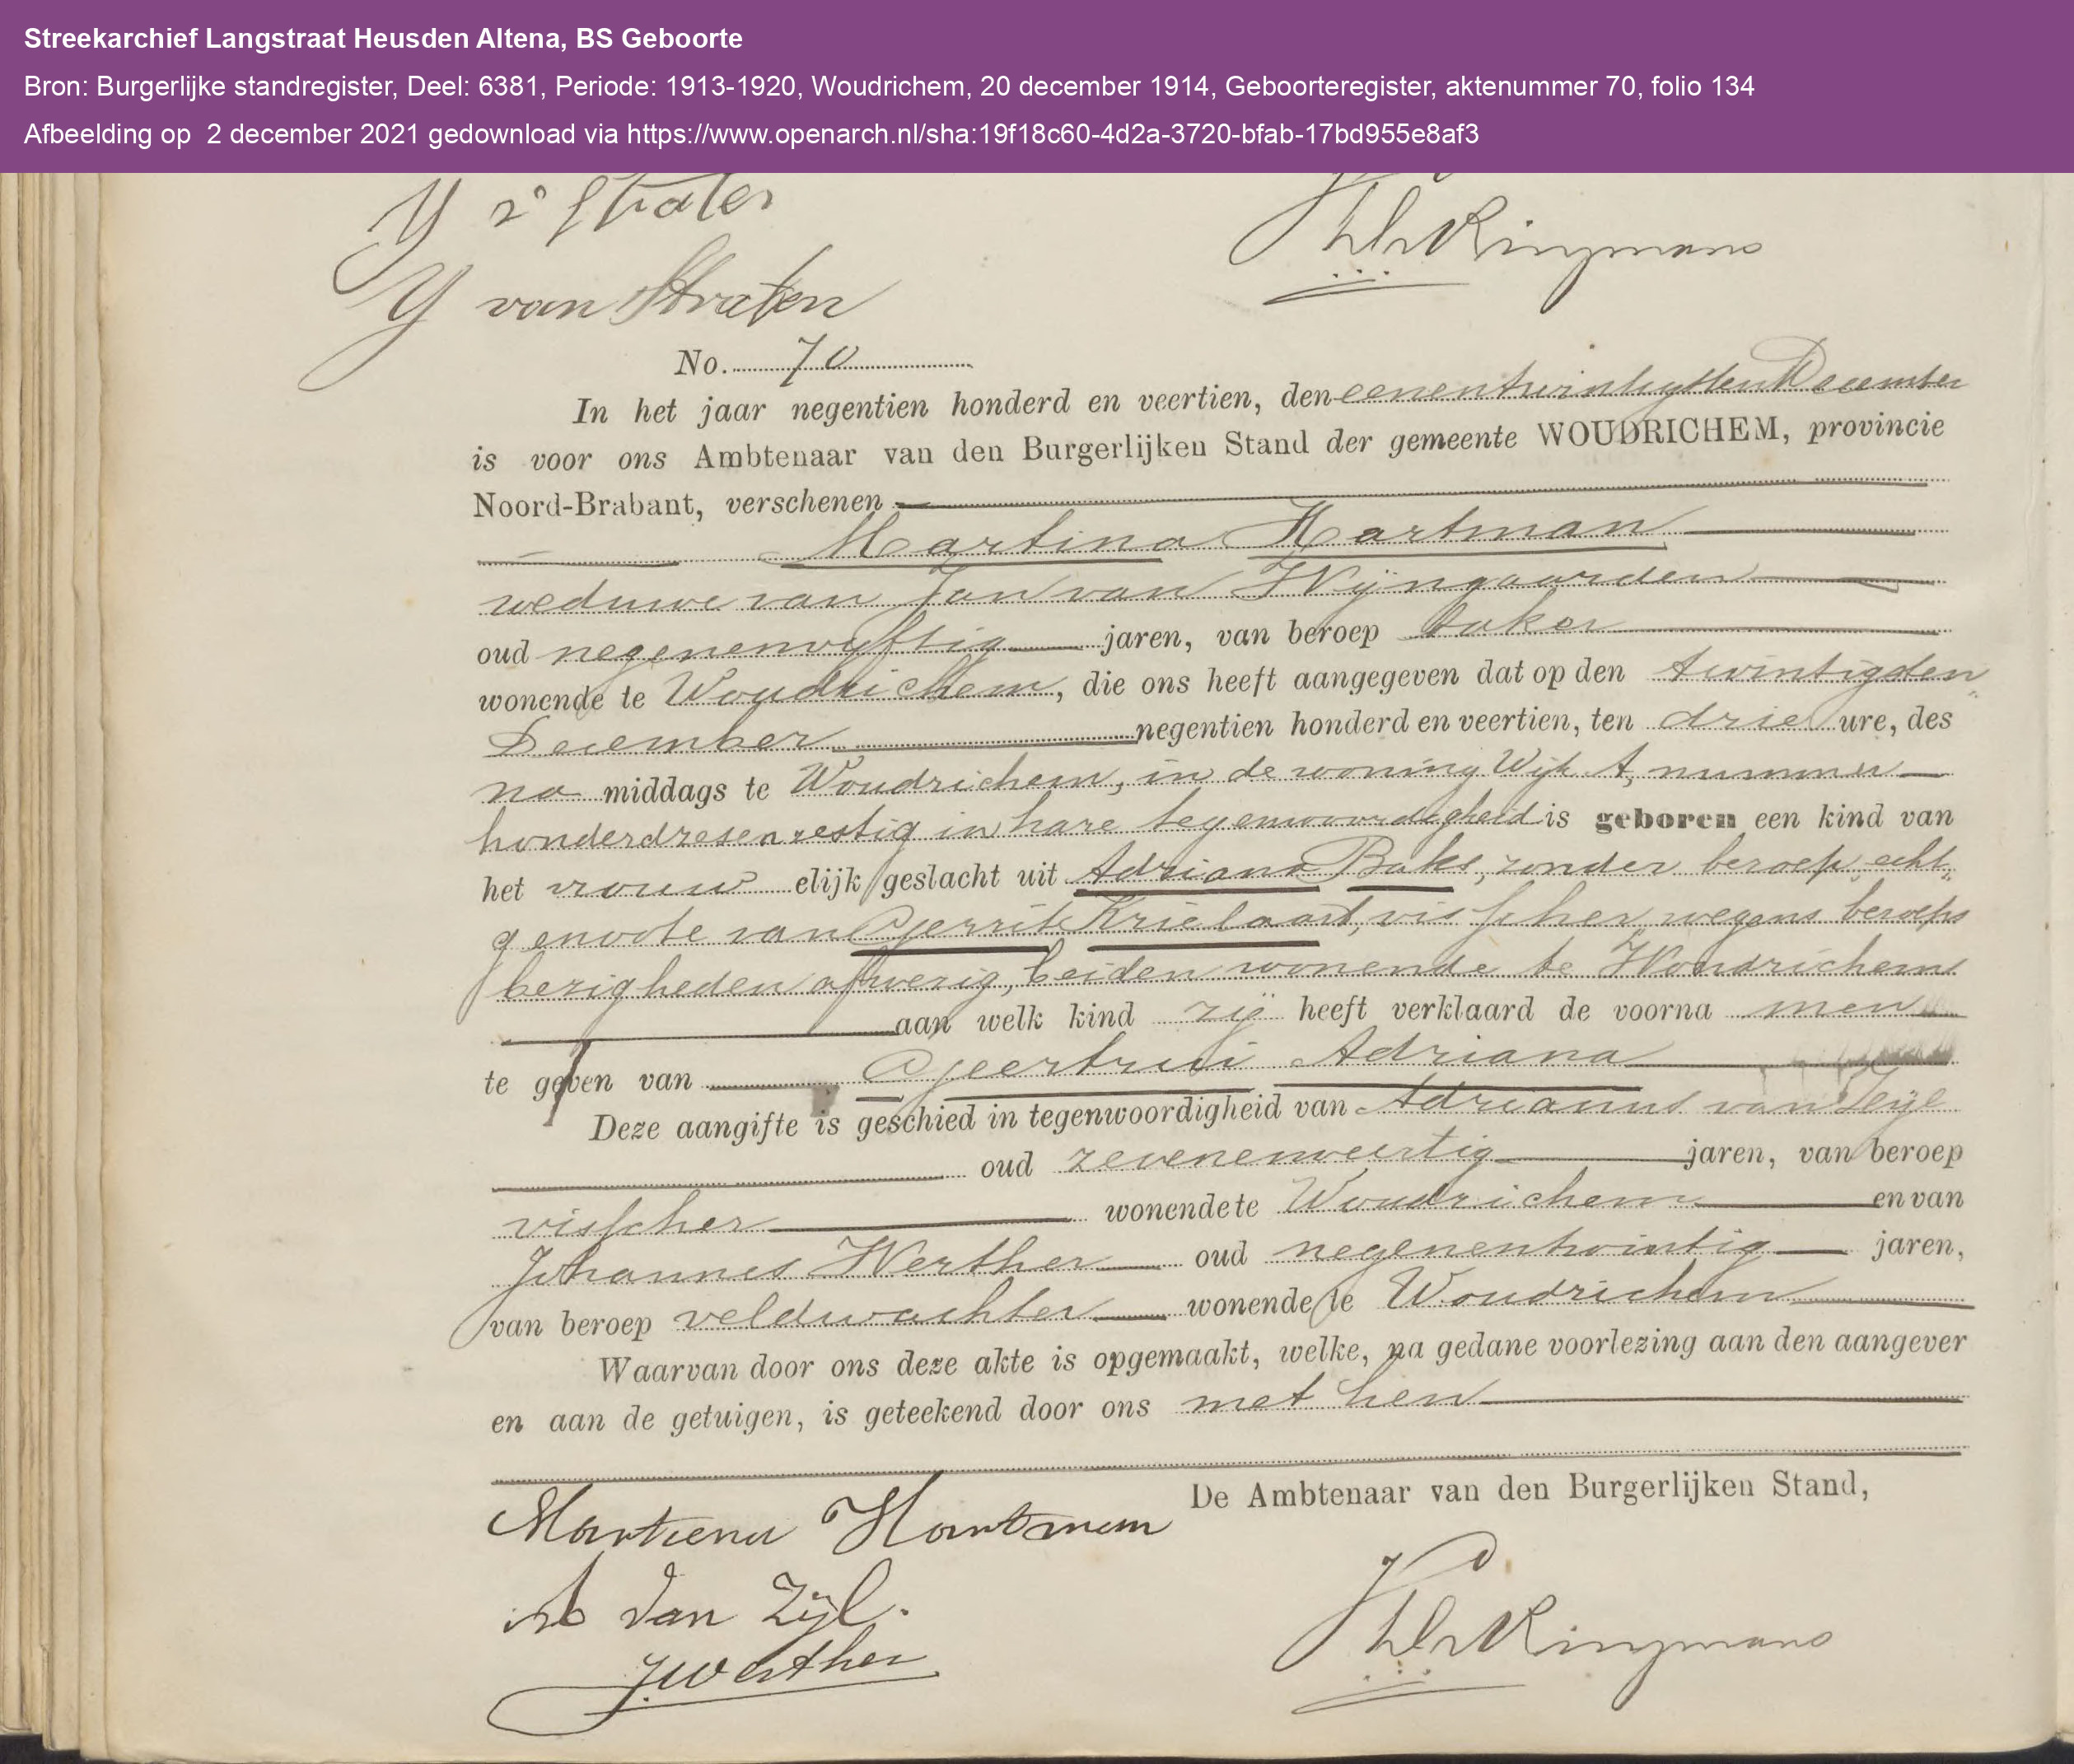 Streekarchief Langstraat Heusden Altena, BS Geboorte
Bron: Burgerlijke standregister, Deel: 6381, Periode: 1913-1920, Woudrichem, 20 december 1914, Geboorteregister, aktenummer 70, folio 134
Afbeelding op 2 december 2021 gedownload via https://www.openarch.nl/sha:19f18c60-4d2a-3720-bfab-17bd955e8af3
Y v Straten
Ringmans
Y van Straten
No. 70
In het jaar negentien honderd en veertien, den eenentwintigsten December
is voor ons Ambtenaar van den Burgerlijken Stand der gemeente WOUDRICHEM, provincie
Noord-Brabant, verschenen
Martina Hartman
weduwe van Jan van Wijngaarden
oud negenenvijftig jaren, van beroep baker
wonende te Woudrichem, die ons heeft aangegeven dat op den twintigsten
December negentien honderd en veertien, ten drie ure, des
na middags te Woudrichem, in de woning Wijk A, nummer
honderdzesenzestig in hare tegenwoordigheid is geboren een kind van
het vrouw elijk geslacht uit Adriana Baks, zonder beroep, echt„
genoote van Gerrit Krielaart, visscher, wegens beroeps
bezigheden afwezig, beiden wonende te Woudrichem
aan welk kind zij heeft verklaard de voorna men
te geven van Geertrui Adriana
Deze aangifte is geschied in tegenwoordigheid van Adrianus van Zijl
oud zevenenveertig jaren, van beroep
visscher wonende te Woudrichem en van
Johannes Werther oud negenentwintig jaren,
van beroep veldwachter wonende te Woudrichem
Waarvan door ons deze akte is opgemaakt, welke, na gedane voorlezing aan den aangever
en aan de getuigen, is geteekend door ons met hen
De Ambtenaar van den Burgerlijken Stand,
Martiena Hartman
A van Zijl.
Ringmans
JWerther